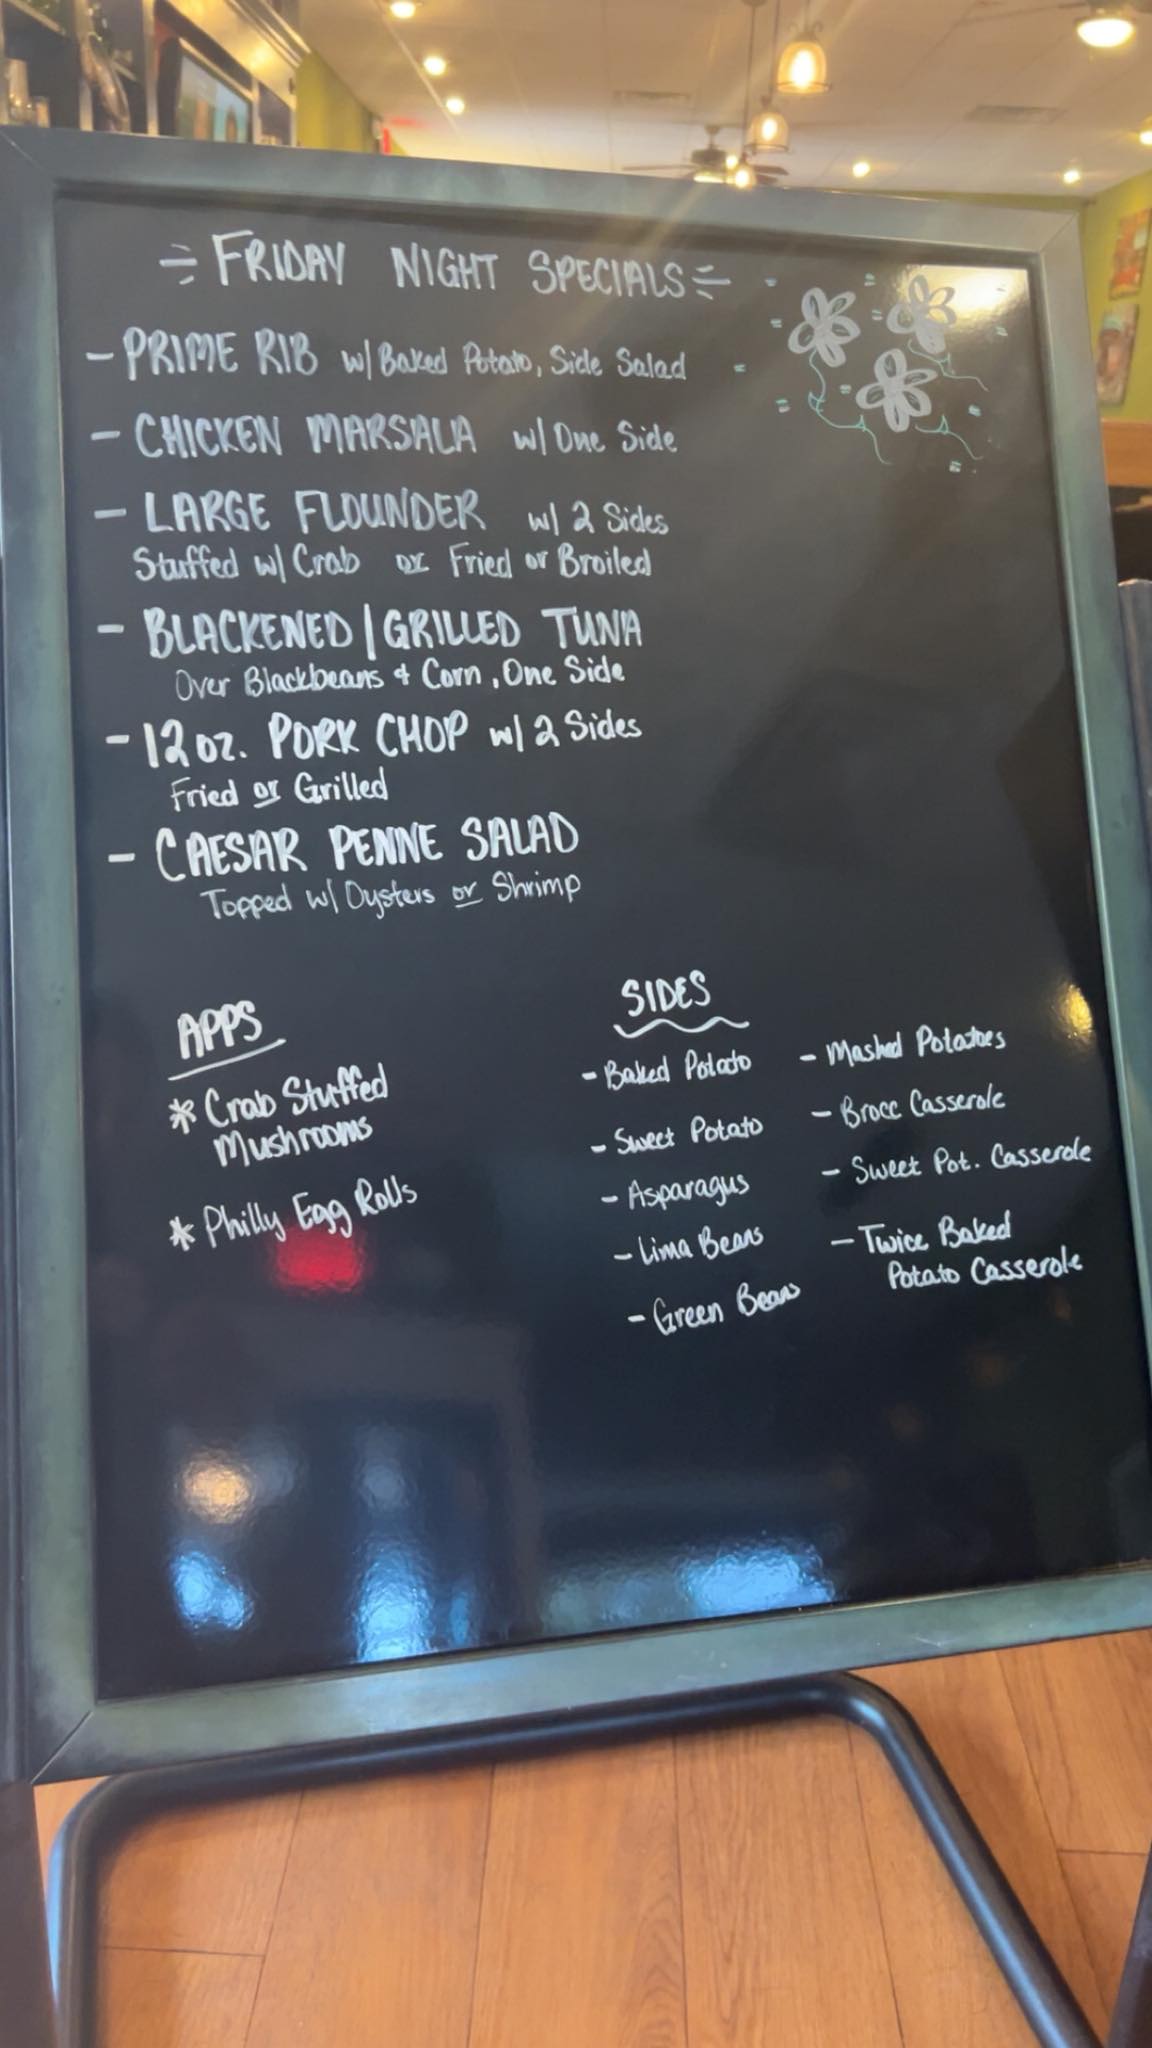 = FRIDAY NIGHT SPECIALS =
- PRIME RIB w/ Baked Potato, Side Salad
- CHICKEN MARSALA w/ One Side
- LARGE FLOUNDER w/ 2 Sides
Stuffed w/ Crab or Fried or Broiled
- BLACKENED | GRILLED TUNA
Over Blackbeans & Corn, One Side
- 12 oz. PORK CHOP w/ 2 Sides
Fried or Grilled
- CAESAR PENNE SALAD
Topped w/ Oysters or Shrimp
APPS
* Crab Stuffed
Mushrooms
* Philly Egg Rolls
SIDES
- Baked Potato
- Sweet Potato
- Asparagus
- Lima Beans
- Green Beans
- Mashed Potatoes
- Brocc Casserole
- Sweet Pot. Casserole
- Twice Baked
Potato Casserole